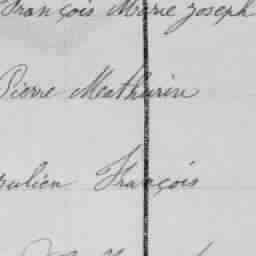 François Marie Joseph
Pierre Mathurin
François